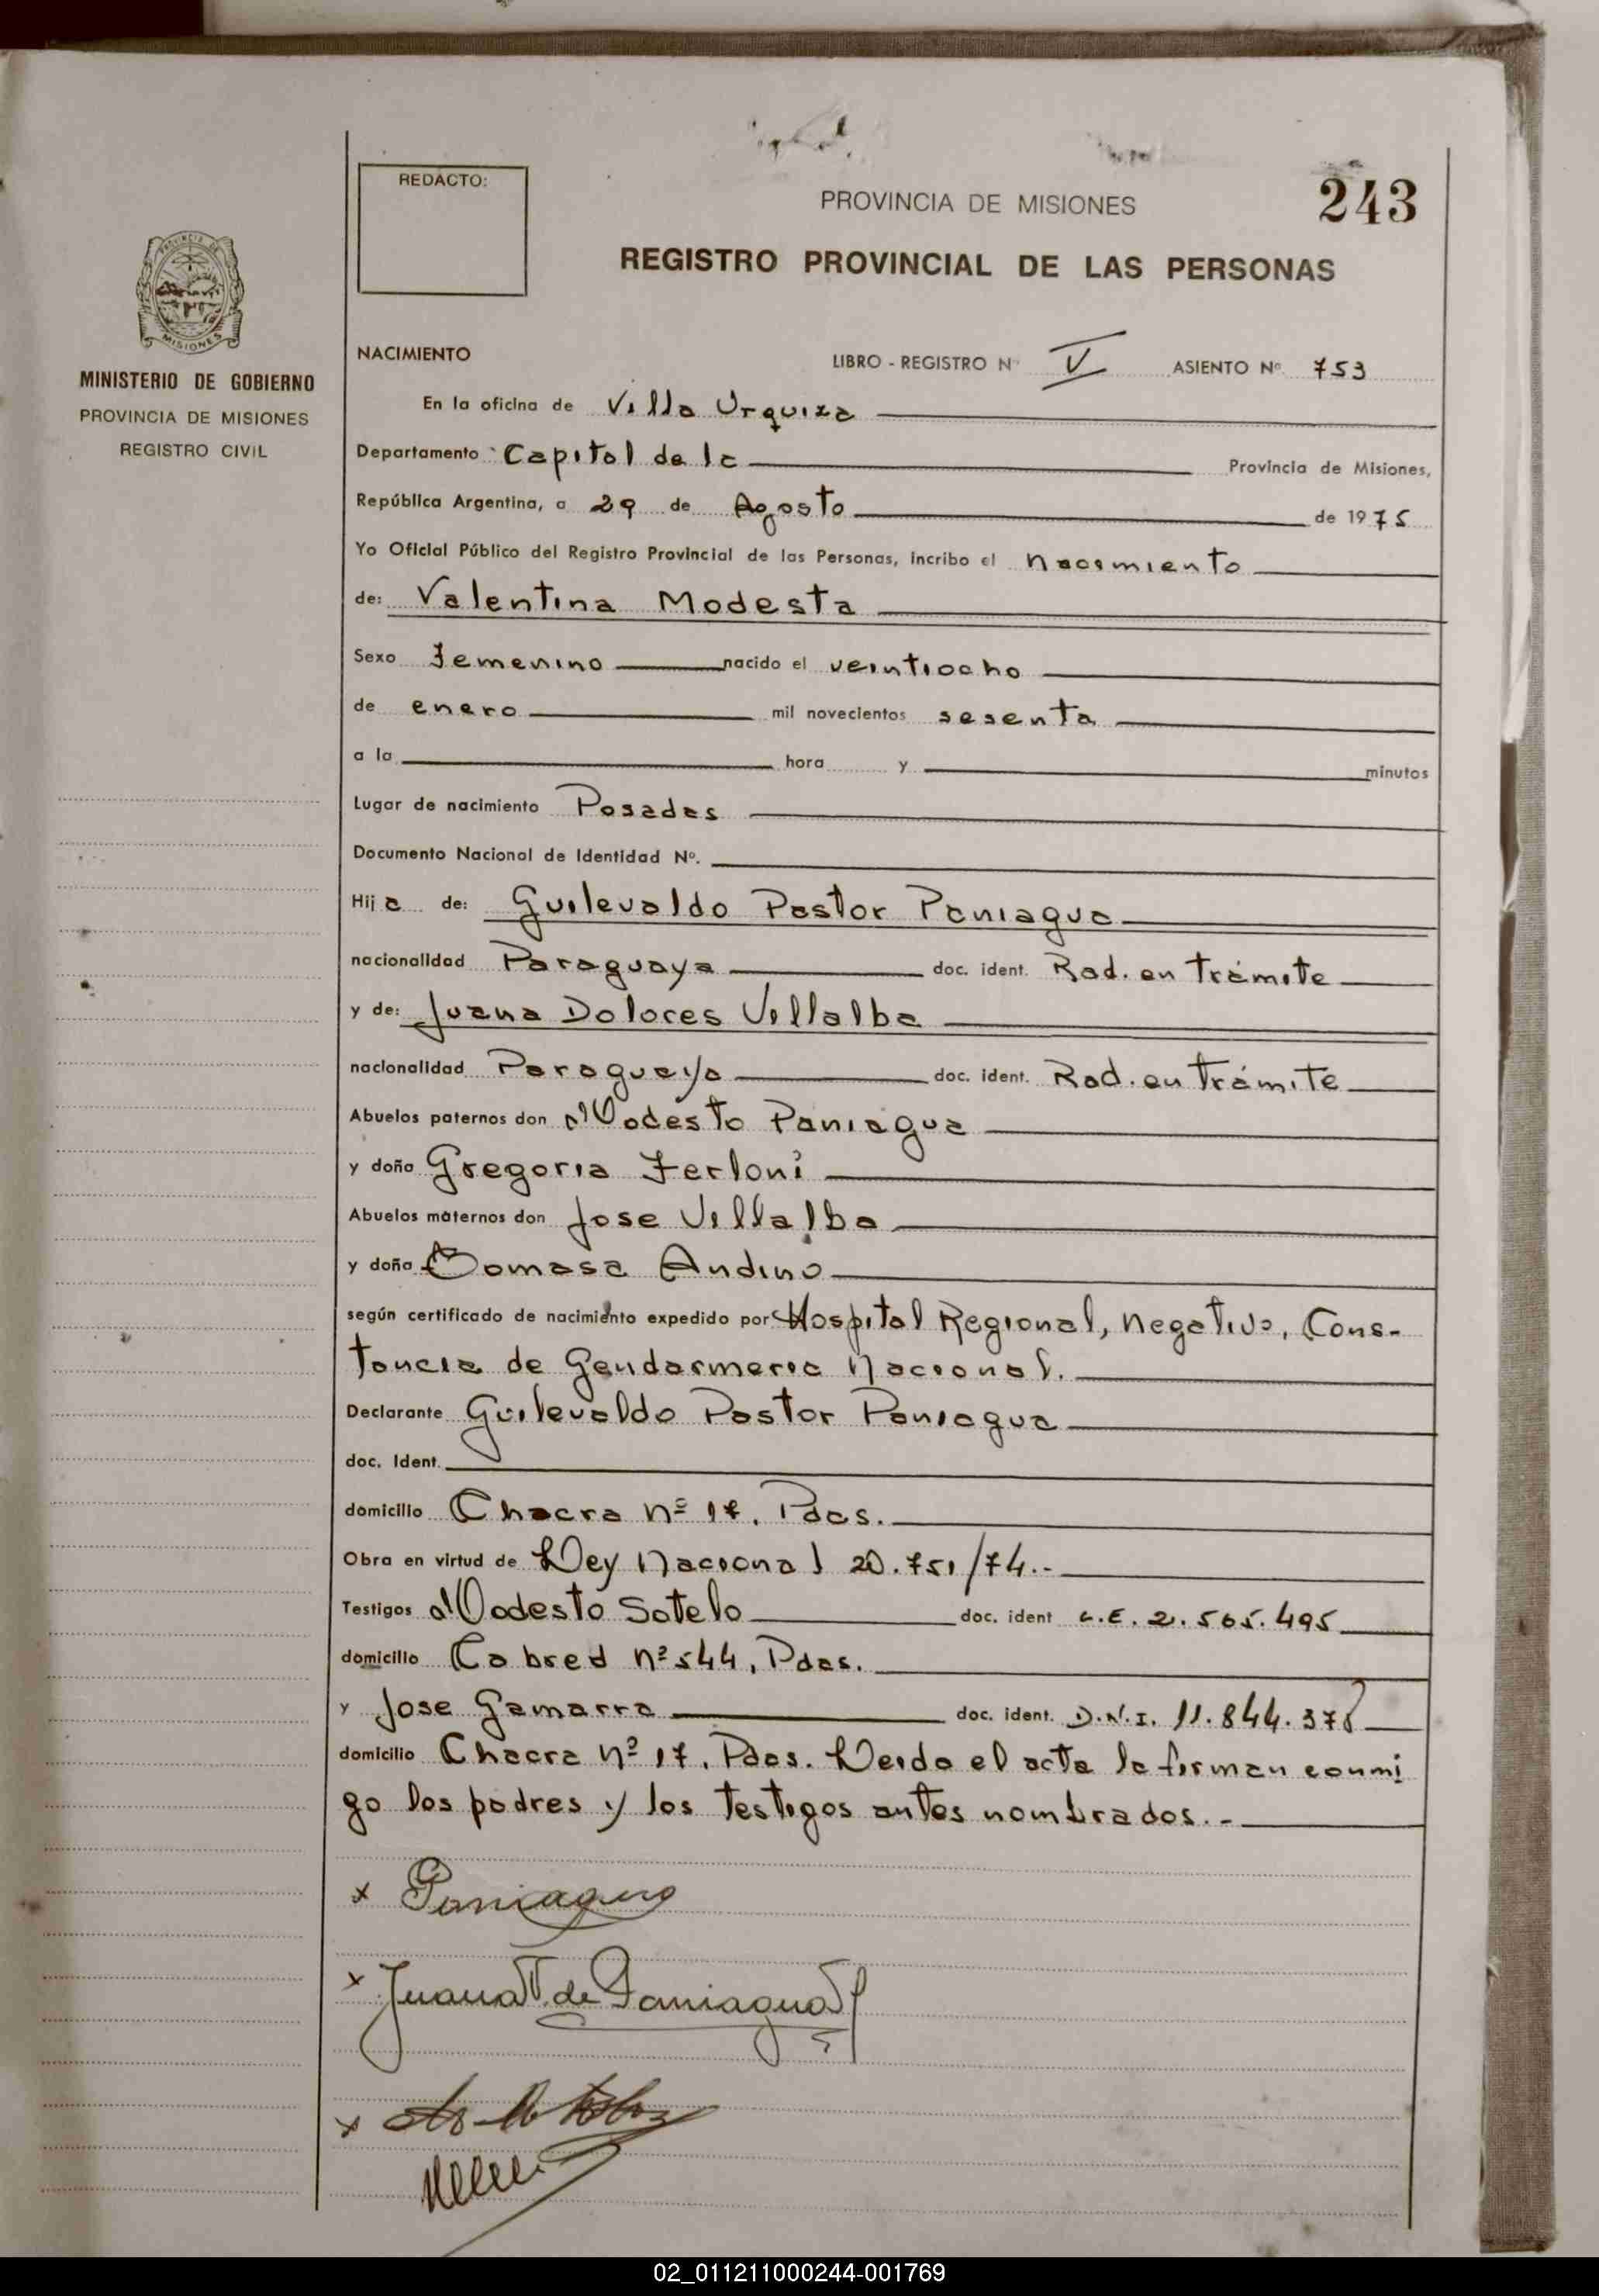 REDACTO:
PROVINCIA DE MISIONES
243
REGISTRO PROVINCIAL DE LAS PERSONAS
PROVINCIA DE
MISIONES
MINISTERIO DE GOBIERNO
PROVINCIA DE MISIONES
REGISTRO CIVIL
NACIMIENTO LIBRO - REGISTRO Nº V ASIENTO Nº 753
En la oficina de Villa Urquiza
Departamento Capital de la Provincia de Misiones,
República Argentina, a 29 de Agosto de 1975
Yo Oficial Público del Registro Provincial de las Personas, incribo el nacimiento
de: Valentina Modesta
Sexo Femenino nacido el veintiocho
de enero mil novecientos sesenta
a la hora y minutos
Lugar de nacimiento Posadas
Documento Nacional de Identidad Nº.
Hija de: Guilevaldo Pastor Paniagua
nacionalidad Paraguaya doc. ident. Rad. en trámite
y de: Juana Dolores Villalba
nacionalidad Paraguaya doc. ident. Rad. en trámite
Abuelos paternos don Modesto Paniagua
y doña Gregoria Ferloni
Abuelos maternos don Jose Villalba
y doña Tomasa Andino
según certificado de nacimiento expedido por Hospital Regional, negativo, Cons-
tancia de Gendarmeria Nacional.
Declarante Guilevaldo Pastor Paniagua
doc. Ident.
domicilio Chacra nº 17, Pdas.
Obra en virtud de Ley Nacional 20.751/74.-
Testigos Modesto Sotelo doc. ident L.E. 2.565.495
domicilio Cabred nº 544, Pdas.
y Jose Gamarra doc. ident. D.N.I. 11.844.378
domicilio Chacra nº 17, Pdas. Leida el acta la firman conmi
go los padres y los testigos antes nombrados.-
x Paniagua
x Juana V. de Paniagua
x
02_011211000244-001769